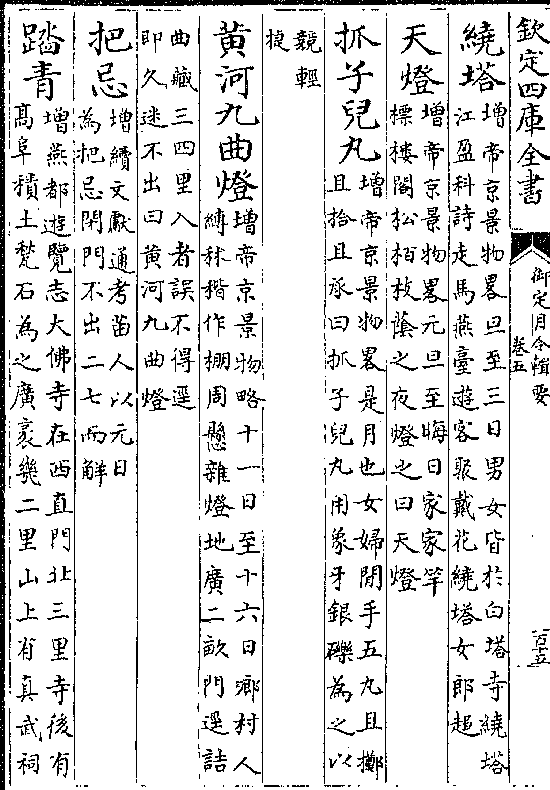 欽定四庫全書
御定月令輯要
卷五
百十五
繞塔增帝京景物畧旦至三日男女皆於白塔寺繞塔
江盈科詩走馬燕臺遊客聚戴花繞塔女郎趨
天燈增帝京景物畧元旦至晦日家家竿
標樓閣松栢枝蔭之夜燈之曰天燈
抓子兒丸增帝京景物畧是月也女婦閒手五丸且擲
且拾且承曰抓子兒丸用象牙銀礫為之以
競輕
捷
黃河九曲燈增帝京景物略十一日至十六日鄉村人
縛秫稭作棚周懸雜燈地廣二畝門逕詰
曲藏三四里入者誤不得逕
即久迷不出曰黃河九曲燈
把忌增續文獻通考苗人以元日
為把忌閉門不出二七而解
踏青增燕都遊覽志大佛寺在西直門北三里寺後有
髙阜積土甃石為之廣袤幾二里山上有真武祠